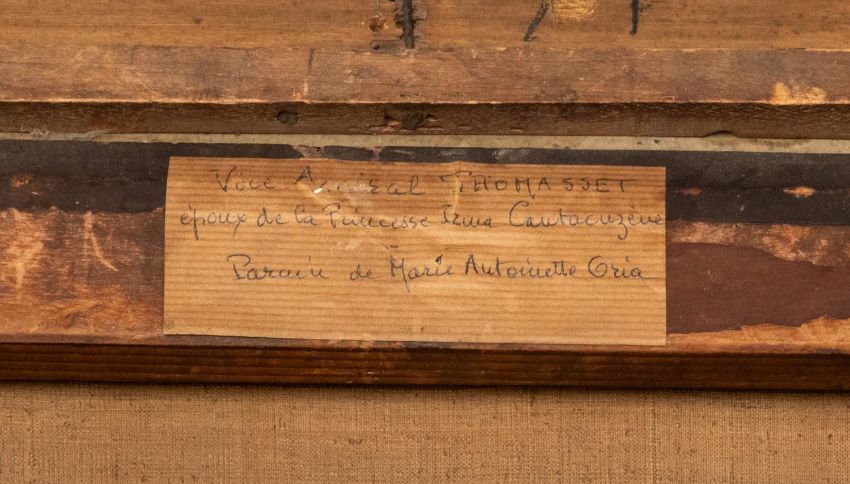 Vice Amiral THOMASSET
époux de la Princesse Irma Cantacuzène
Parain de Marie Antoinette Oria